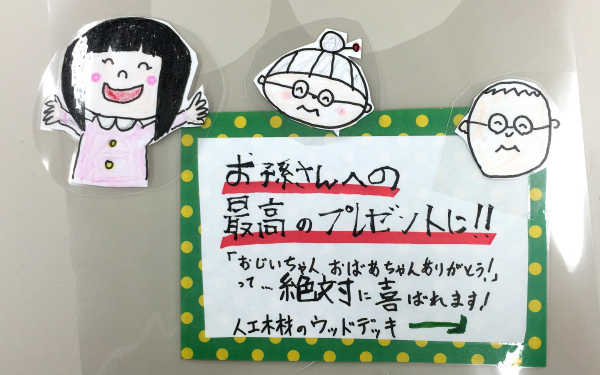 お孫さんへの
最高のプレゼントに!!
「おじいちゃん、おばあちゃんありがとう!」
って… 絶対に喜ばれます!
人工木材のウッドデッキ →